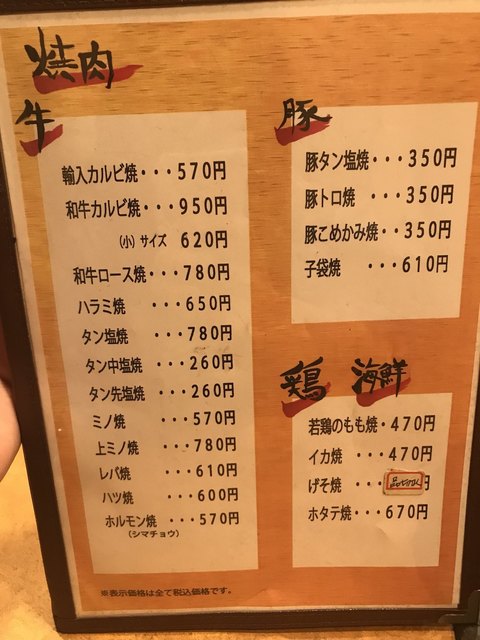 焼肉
牛
輸入カルビ焼・・・570円
和牛カルビ焼・・・950円
(小) サイズ 620円
和牛ロース焼・・・780円
ハラミ焼 ・・・650円
タン塩焼 ・・・780円
タン中塩焼 ・・・260円
タン先塩焼 ・・・260円
ミノ焼 ・・・570円
上ミノ焼 ・・・780円
レバ焼 ・・・610円
ハツ焼 ・・・600円
ホルモン焼 ・・・570円
(シマチョウ)
豚
豚タン塩焼・・・350円
豚トロ焼 ・・・350円
豚こめかみ焼・・350円
子袋焼 ・・・610円
鶏 海鮮
若鶏のもも焼・470円
イカ焼 ・・・470円
げそ焼 ・・・ 円
ホタテ焼・・・670円
※表示価格は全て税込価格です。